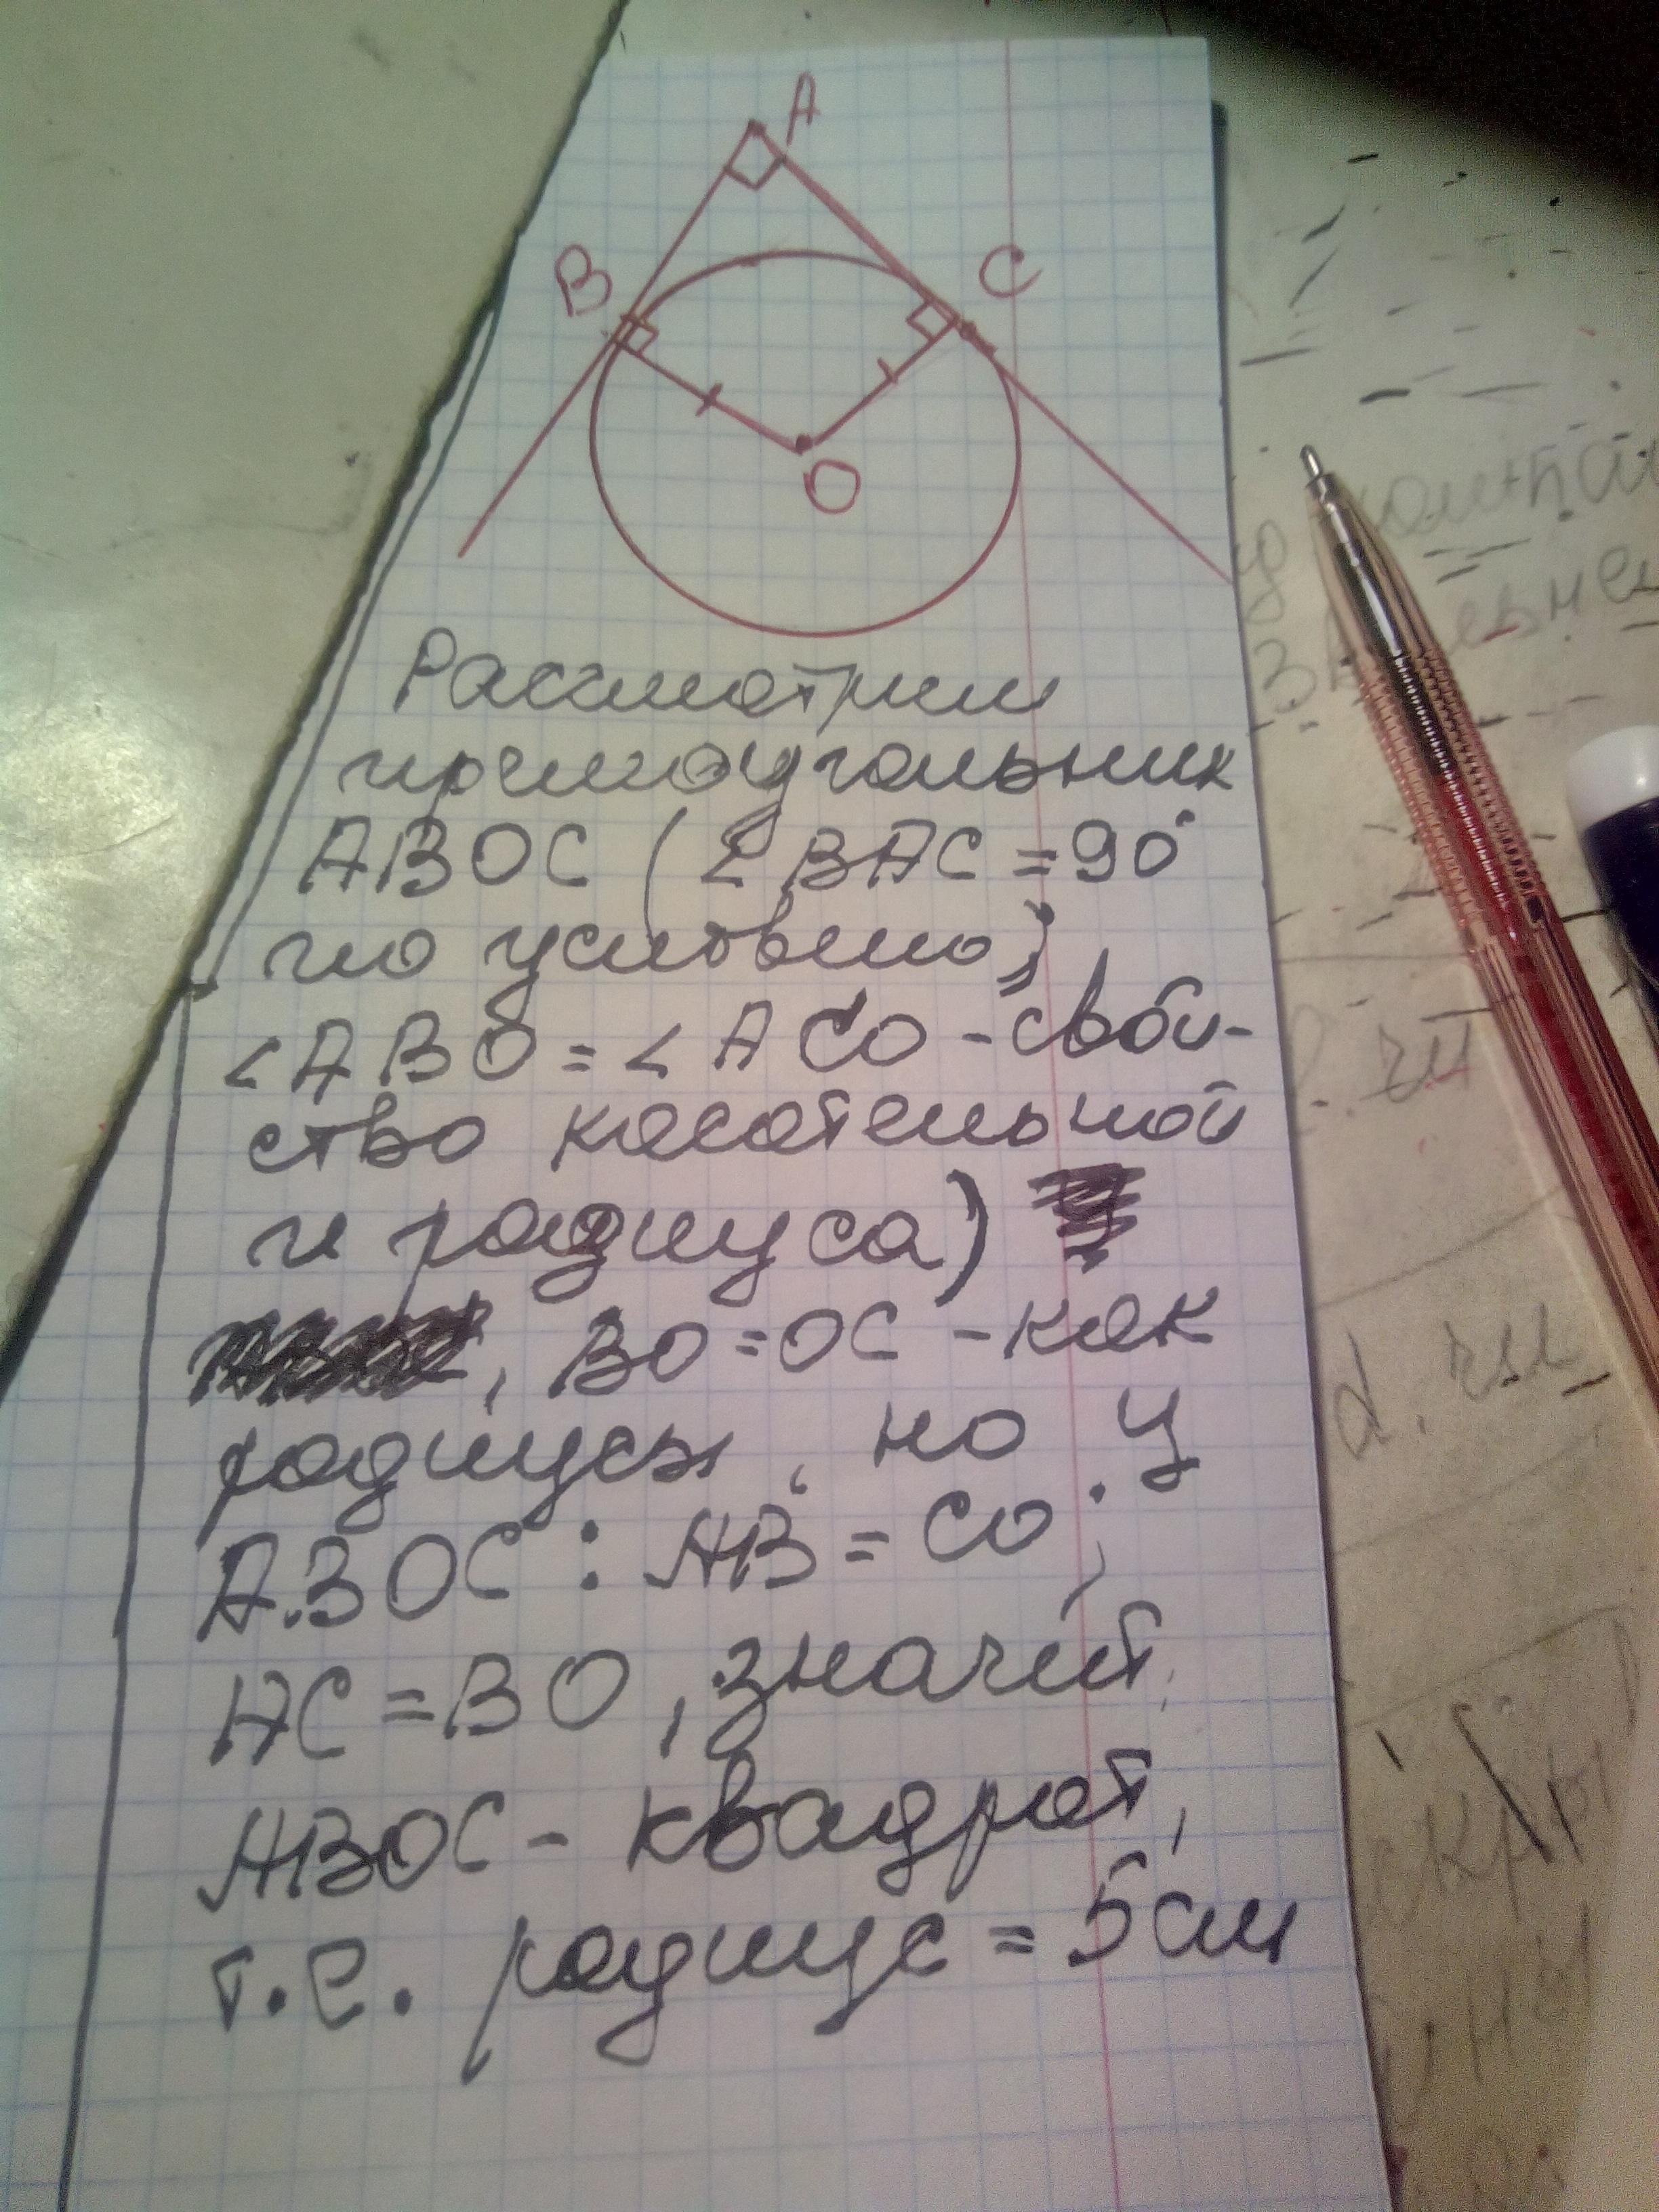 A
B
C
O
Рассмотрим
прямоугольник
ABOC (∠BAC = 90°
по условию,
∠ABO = ∠ACO - свой-
ство касательной
и радиуса)
, BO = OC - как
радиусы, но у
ABOC : AB = CO ;
AC = BO, значит,
ABOC - квадрат,
т.е. радиус = 5 см